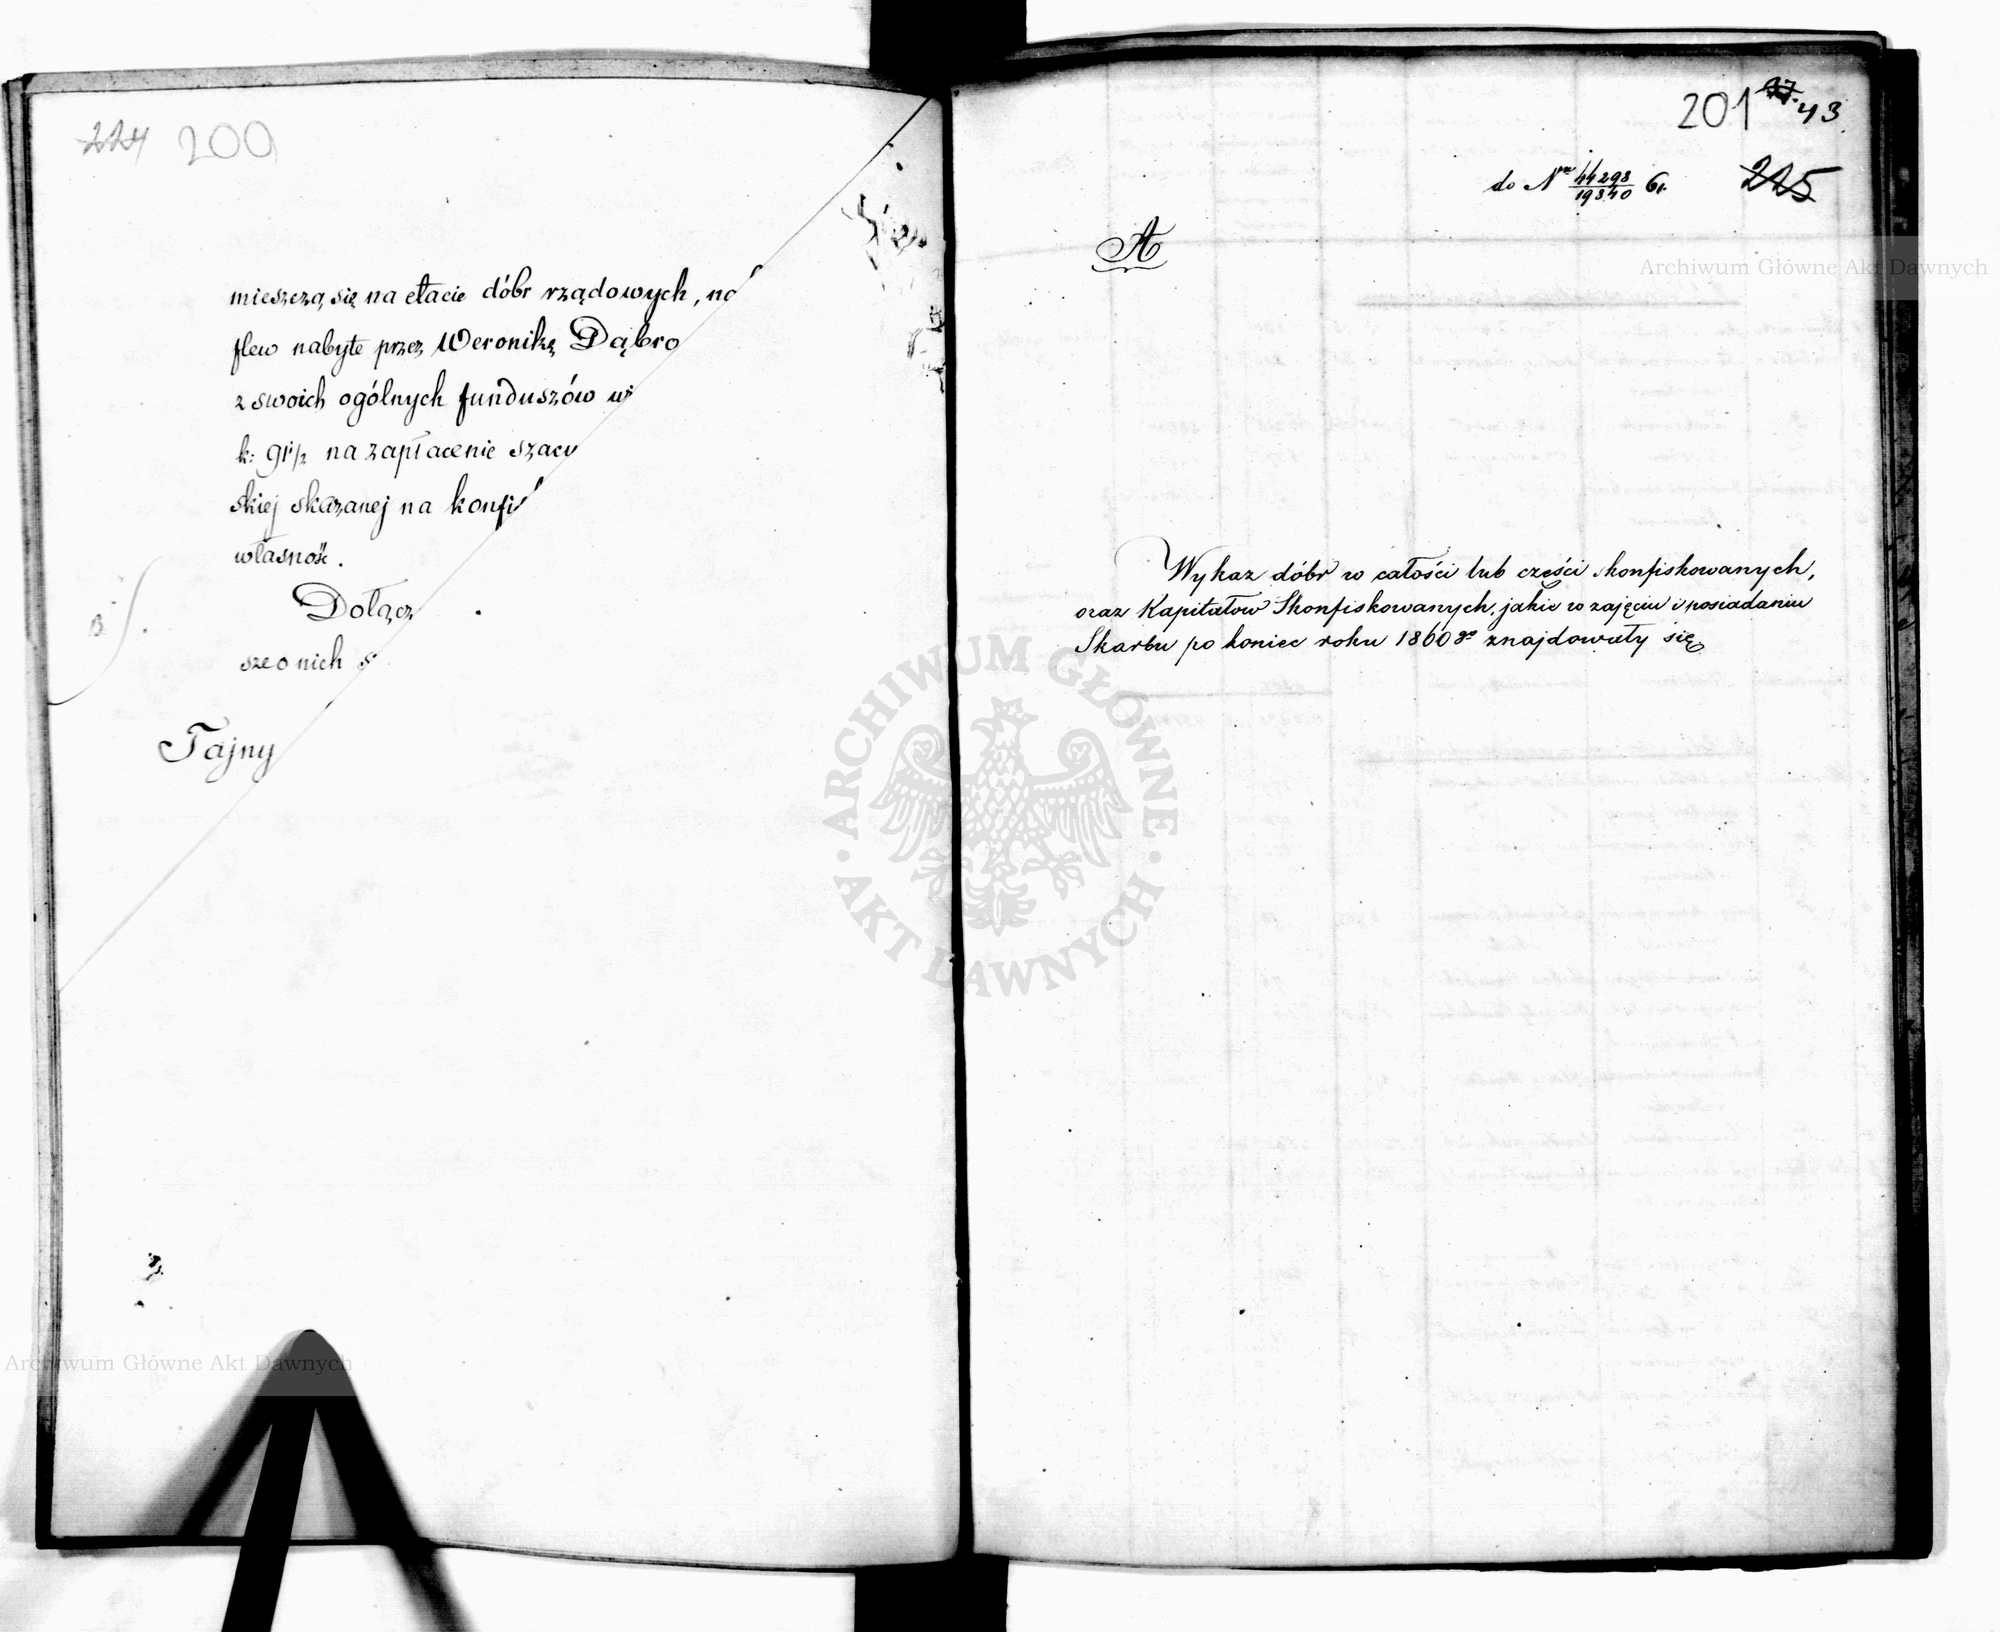 224 200
mieszczą się na etacie dóbr rządowych, na
flew nabyte przez Weronikę Dąbro
z swoich ogólnych funduszów w
k: 91 1/2 na zapłacenie szacu
skiej skazanej na konfi
własność.
Dołącz
szeo nich s
Tajny
201 43
do Nru 44298/19340 61. 225
A
Wykaz dóbr w całości lub części skonfiskowanych,
oraz Kapitałów Skonfiskowanych, jakie w zajęciu i posiadaniu
Skarbu po koniec roku 1860go znajdowały się
Archiwum Główne Akt Dawnych
ARCHIWUM GŁÓWNE AKT DAWNYCH
Archiwum Główne Akt Dawnych